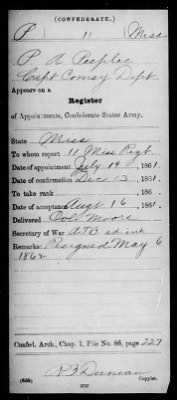 (CONFEDERATE.)
P 11 Miss
P. A. Peeples
Capt Comsy Dept
Appears on a
Register
of Appointments, Confederate States Army.
State Miss
To whom report 11 Miss Regt.
Date of appointment July 19, 1861.
Date of confirmation Dec 13, 1861.
To take rank , 186 .
Date of acceptance Augt 16, 1861.
Delivered Col Moore
Secretary of War ATB
Remarks: Resigned May 6
1862
Confed. Arch., Chap. 1, File No. 86, page 227
(635) Copyist.